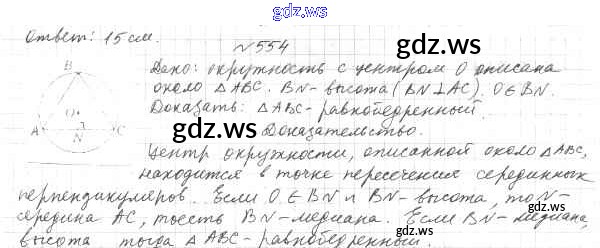 gdz.ws
ответ: 15 см.
№554
gdz.ws
Дано: окружность с центром O описана
около △ABC. BN- высота (BN⊥AC), O∈BN.
Доказать: △ABC- равнобедренный.
gdz.ws
Доказательство.
B
O
A
N
C
Центр окружности, описанной около △ABC,
находится в точке пересечения серединных
перпендикуляров. Если O∈BN и BN- высота, то N-
середина AC, то есть BN-медиана. Если BN- медиана,
высота тогда △ABC- равнобедренный
gdz.ws